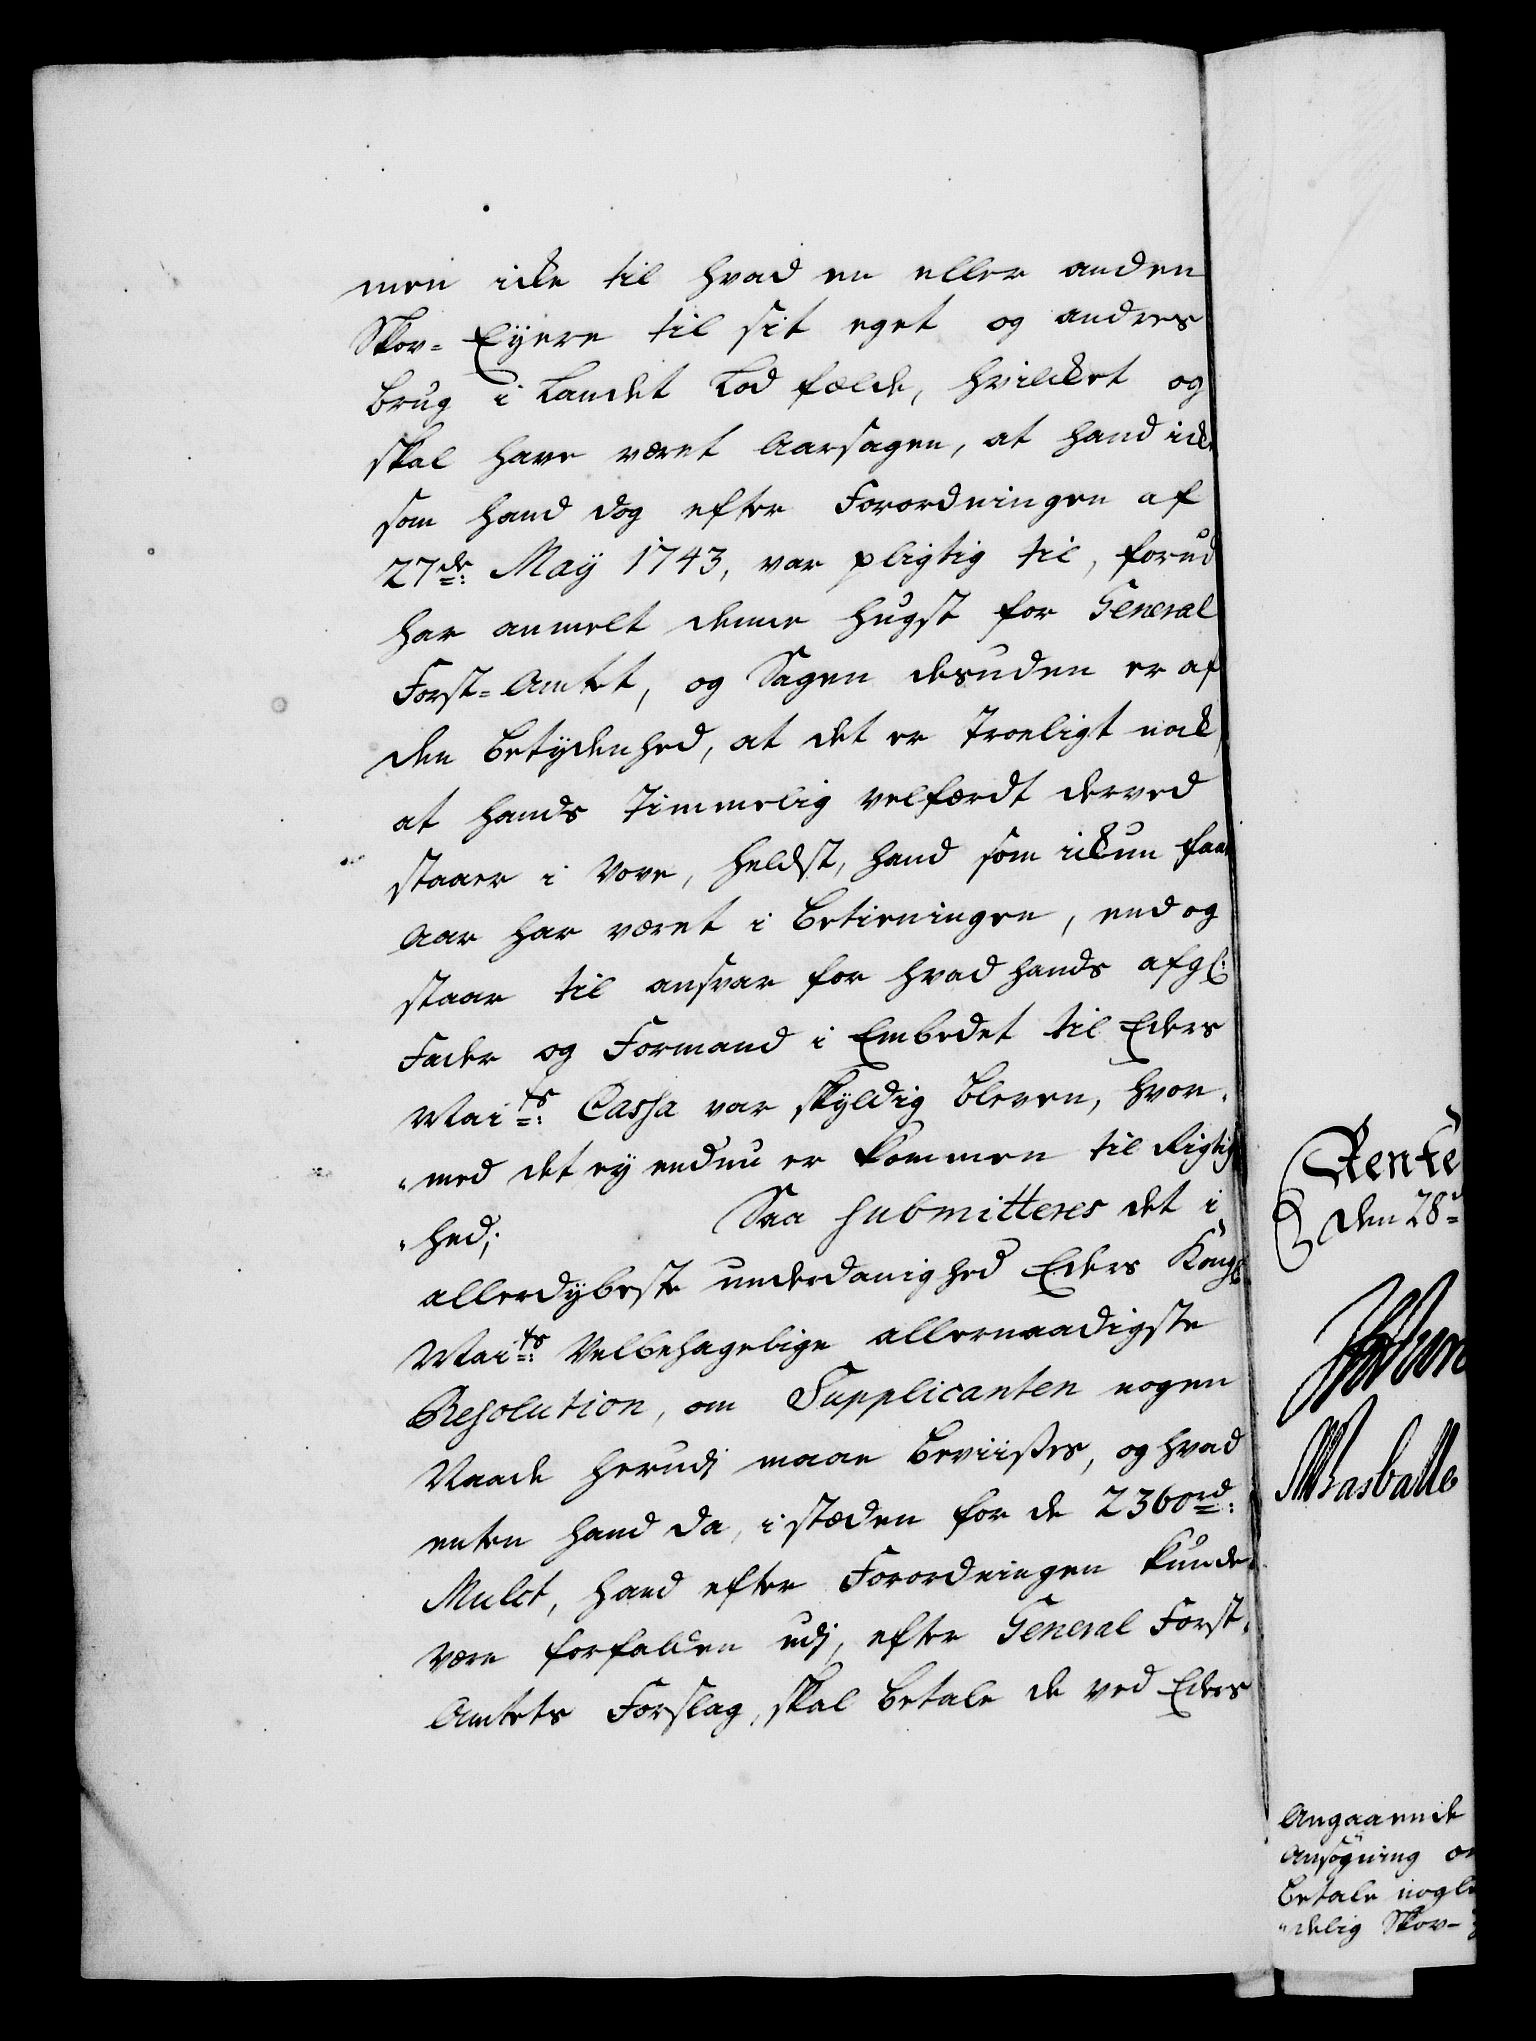 men icke til hvad en eller anden
Skov- Eyere til sit eget og andres
brug i Landet Lod fælde, hvilcket og
skal have været Aarsagen, at hand icke
som hand dog efter Forordningen af
27de: May 1743, var pligtig til, forud
har anmelt denne hugst for General
Forst-Amtet, og Sagen desuden er af
den betydenhed, at det er Troeligt nock,
at hands Timmelig velfærdt derved
staaer i Vove, heldst, hand som ickun faa
Aar har været i betieningen, end og
staar til ansvar for hvad hands afgl:
Fader og Formand i Embedet til Eders
Maits: Cassa var skyldig bleven, hvor-
-med det ey endnu er kommen til Rigtig
-hed; Saa submitteres det i
allerdybeste underdanighed Eders Kongl
Maits: Velbehagelige allernaadigste
Resolution, om Supplicanten nogen
Naade herudj maae beviisses, og hvad
enten hand da, i stæden for de 2360rd:
Mulct, hand efter Forordningen kunde
være forfalden udj, efter General Forst-
Amtets Forslag, skal betale de ved Eders
Rente
den 28
Angaaende
Ansøgning om
betale nogle
-delig Skov-